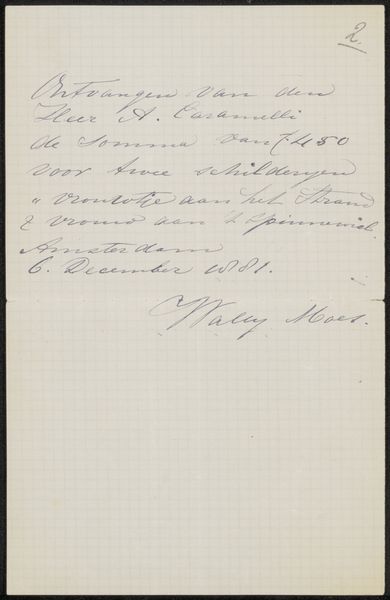 2.
Ontvangen van den
Heer A. Caramelli
de somma van f 450
voor twee schilderyen
"vrouwtje aan het Strand
& vrouw aan 't Spinnewiel.
Amsterdam
6. December 1881.
Wally Moes.